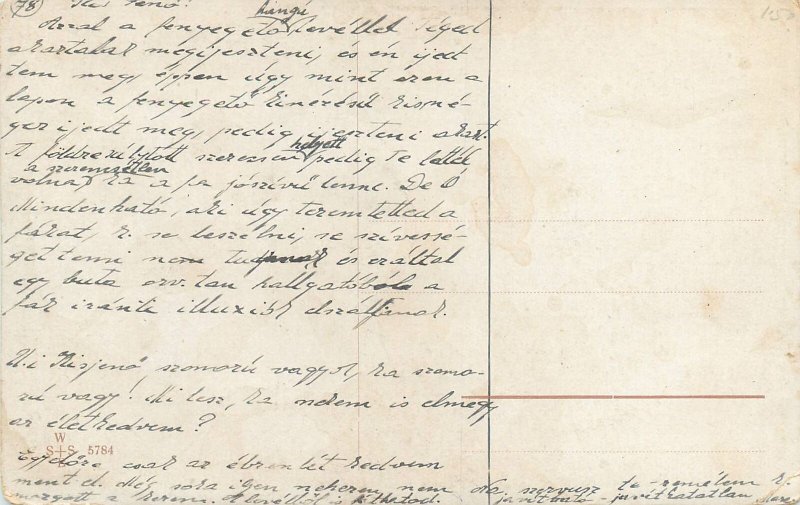 78) Jenő!
hangú
Azzal a fenyegető levéllel Téged
akartalak megijeszteni, és én ijed
tem meg, éppen úgy mint ezen a
lapon a fenyegető kinézésű kisné-
ger ijedt meg, pedig ijeszteni akart.
helyett
A földrezúgtott szerecsen pedig Te lettél
a szerencsétlen
volna, ha a fa jószívű lenne. De Ó
Mindenható, aki úgy teremtetted a
fákat, h. se beszélni, se szívessé-
get tenni nem tudjanak és ezáltal
egy buta orv. tan hallgatóból a
fák iránti illuziók elszálljanak.
Kisjenő, szomorú vagyok, ha szomo-
rú vagy! Mi lesz, ha nekem is elmegy
az életkedvem?
W
S+S 5784
B
Egyelőre csak az ébrenlét kedvem
ment el. Még soha ilyen nehezen nem
mozgott a kezem. A levélből is láthatod.
No, szervusz te - remélem h.
javítható - javíthatatlan
150